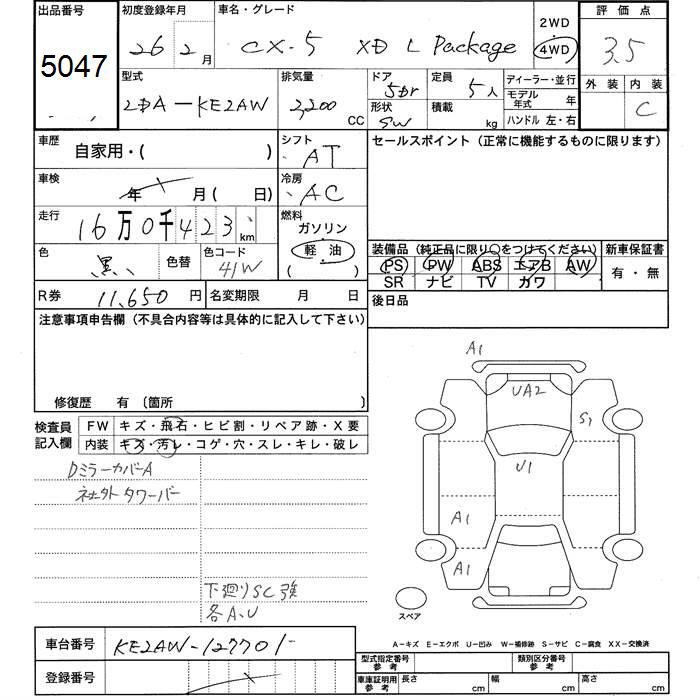 出品番号 初度登録年月 車名・グレード 2WD 評価点
5047 26 2月 CX-5 XD L Package 4WD 3.5
外装 内装
C
型式 排気量 ドア 定員 ディーラー・並行
2DA-KE2AW 2,200 CC 5Dr 5人 モデル年式 年
形状 積載 ハンドル 左・右
SW kg
車歴 自家用・( ) シフト AT セールスポイント(正常に機能するものに限ります)
車検 年 月( 日) 冷房 AC
走行 16万0千423km 燃料 ガソリン
軽油
( )
色 黒 色替 色コード 41W
装備品(純正品に限り○をつけてください) 新車保証書
PS PW ABS エアB AW 有・無
SR ナビ TV カワ
R券 11,650円 名変期限 月 日 後日品
注意事項申告欄(不具合内容等は具体的に記入して下さい)
修復歴 有 (箇所
検査員記入欄 FW キズ・飛石・ヒビ割・リペア跡・X要
内装 キズ・汚レ・コゲ・穴・スレ・キレ・破レ
Dミラーカバー A
社外タワーバー
下廻りSC強
各A、U
A1
UA2
S1
U1
A1
A1
スペア
A-キズ E-エクボ U-凹み W-補修跡 S-サビ C-腐食 XX-交換済
車台番号 KE2AW-127701
登録番号
型式指定番号 参考 類別区分番号 参考
車庫証明用 参考 長さ cm 幅 cm 高さ cm